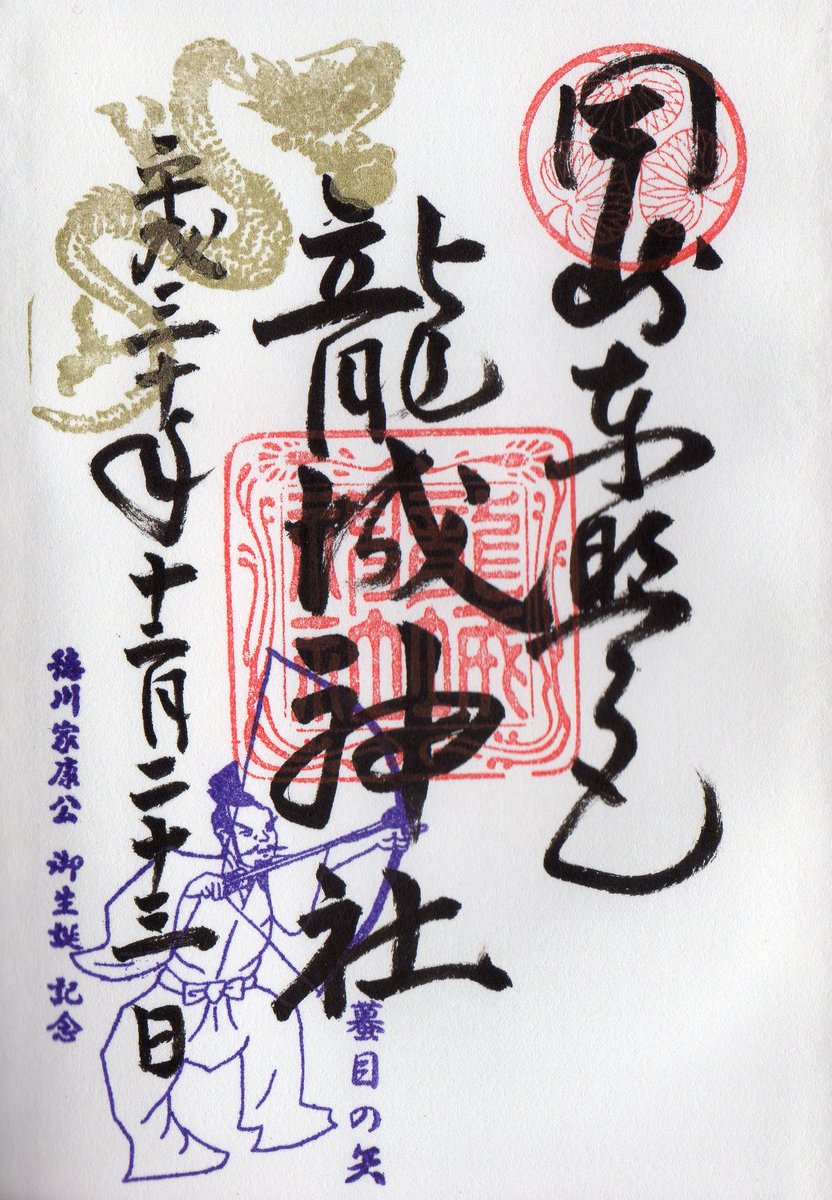 岡崎東照宮
龍城神社
平成三十年十二月二十三日
蟇目の矢
徳川家康公 御生誕 記念